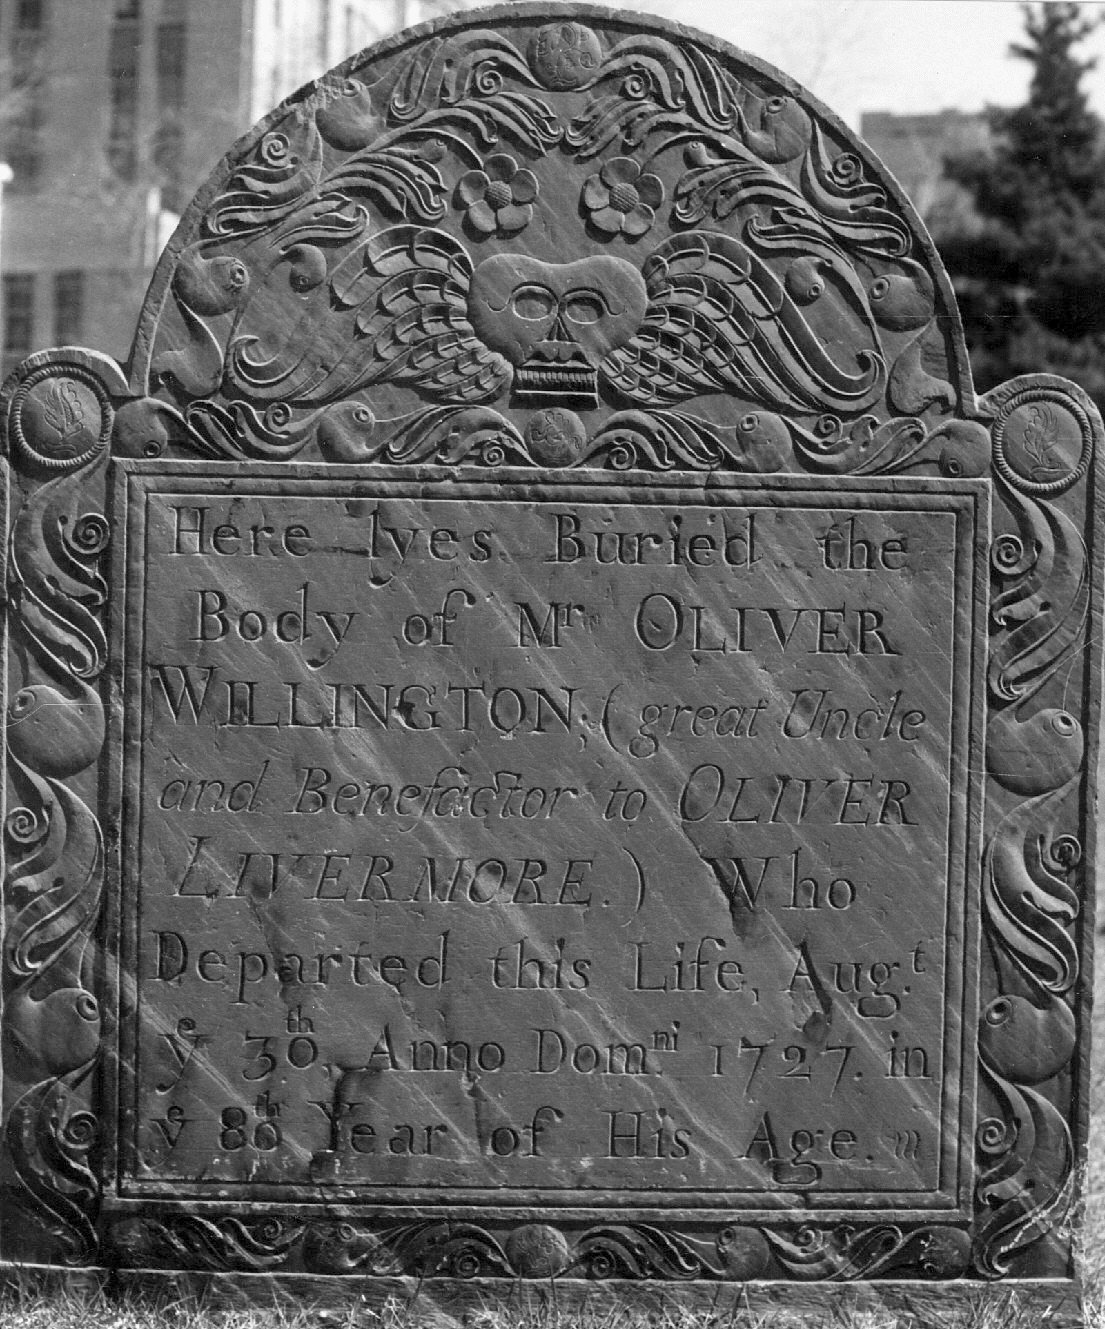 Here lyes Buried the
Body of Mr OLIVER
WILLINGTON, (great Uncle
and Benefactor to OLIVER
LIVERMORE.) Who
Departed this Life, Augt.
ye 30th. Anno Domni 1727. in
ye 80th Year of His Age.